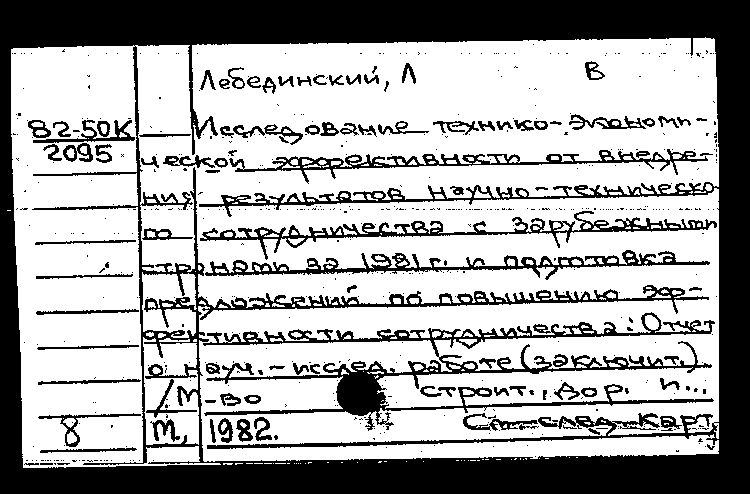 Лебединский, Л В
82-50К Исследование технико-экономи-
2095 ческой эффективности от внедре-
ния результатов научно-техническо
по сотрудничества с зарубежными
странами за 1981 г. и подготовка
предложений по повышению эф-
фективности сотрудничества: Отчет
о науч.-исслед. работе (заключит.)
/М-во строит., дор. и...
8 М, 1982. См. след. карт